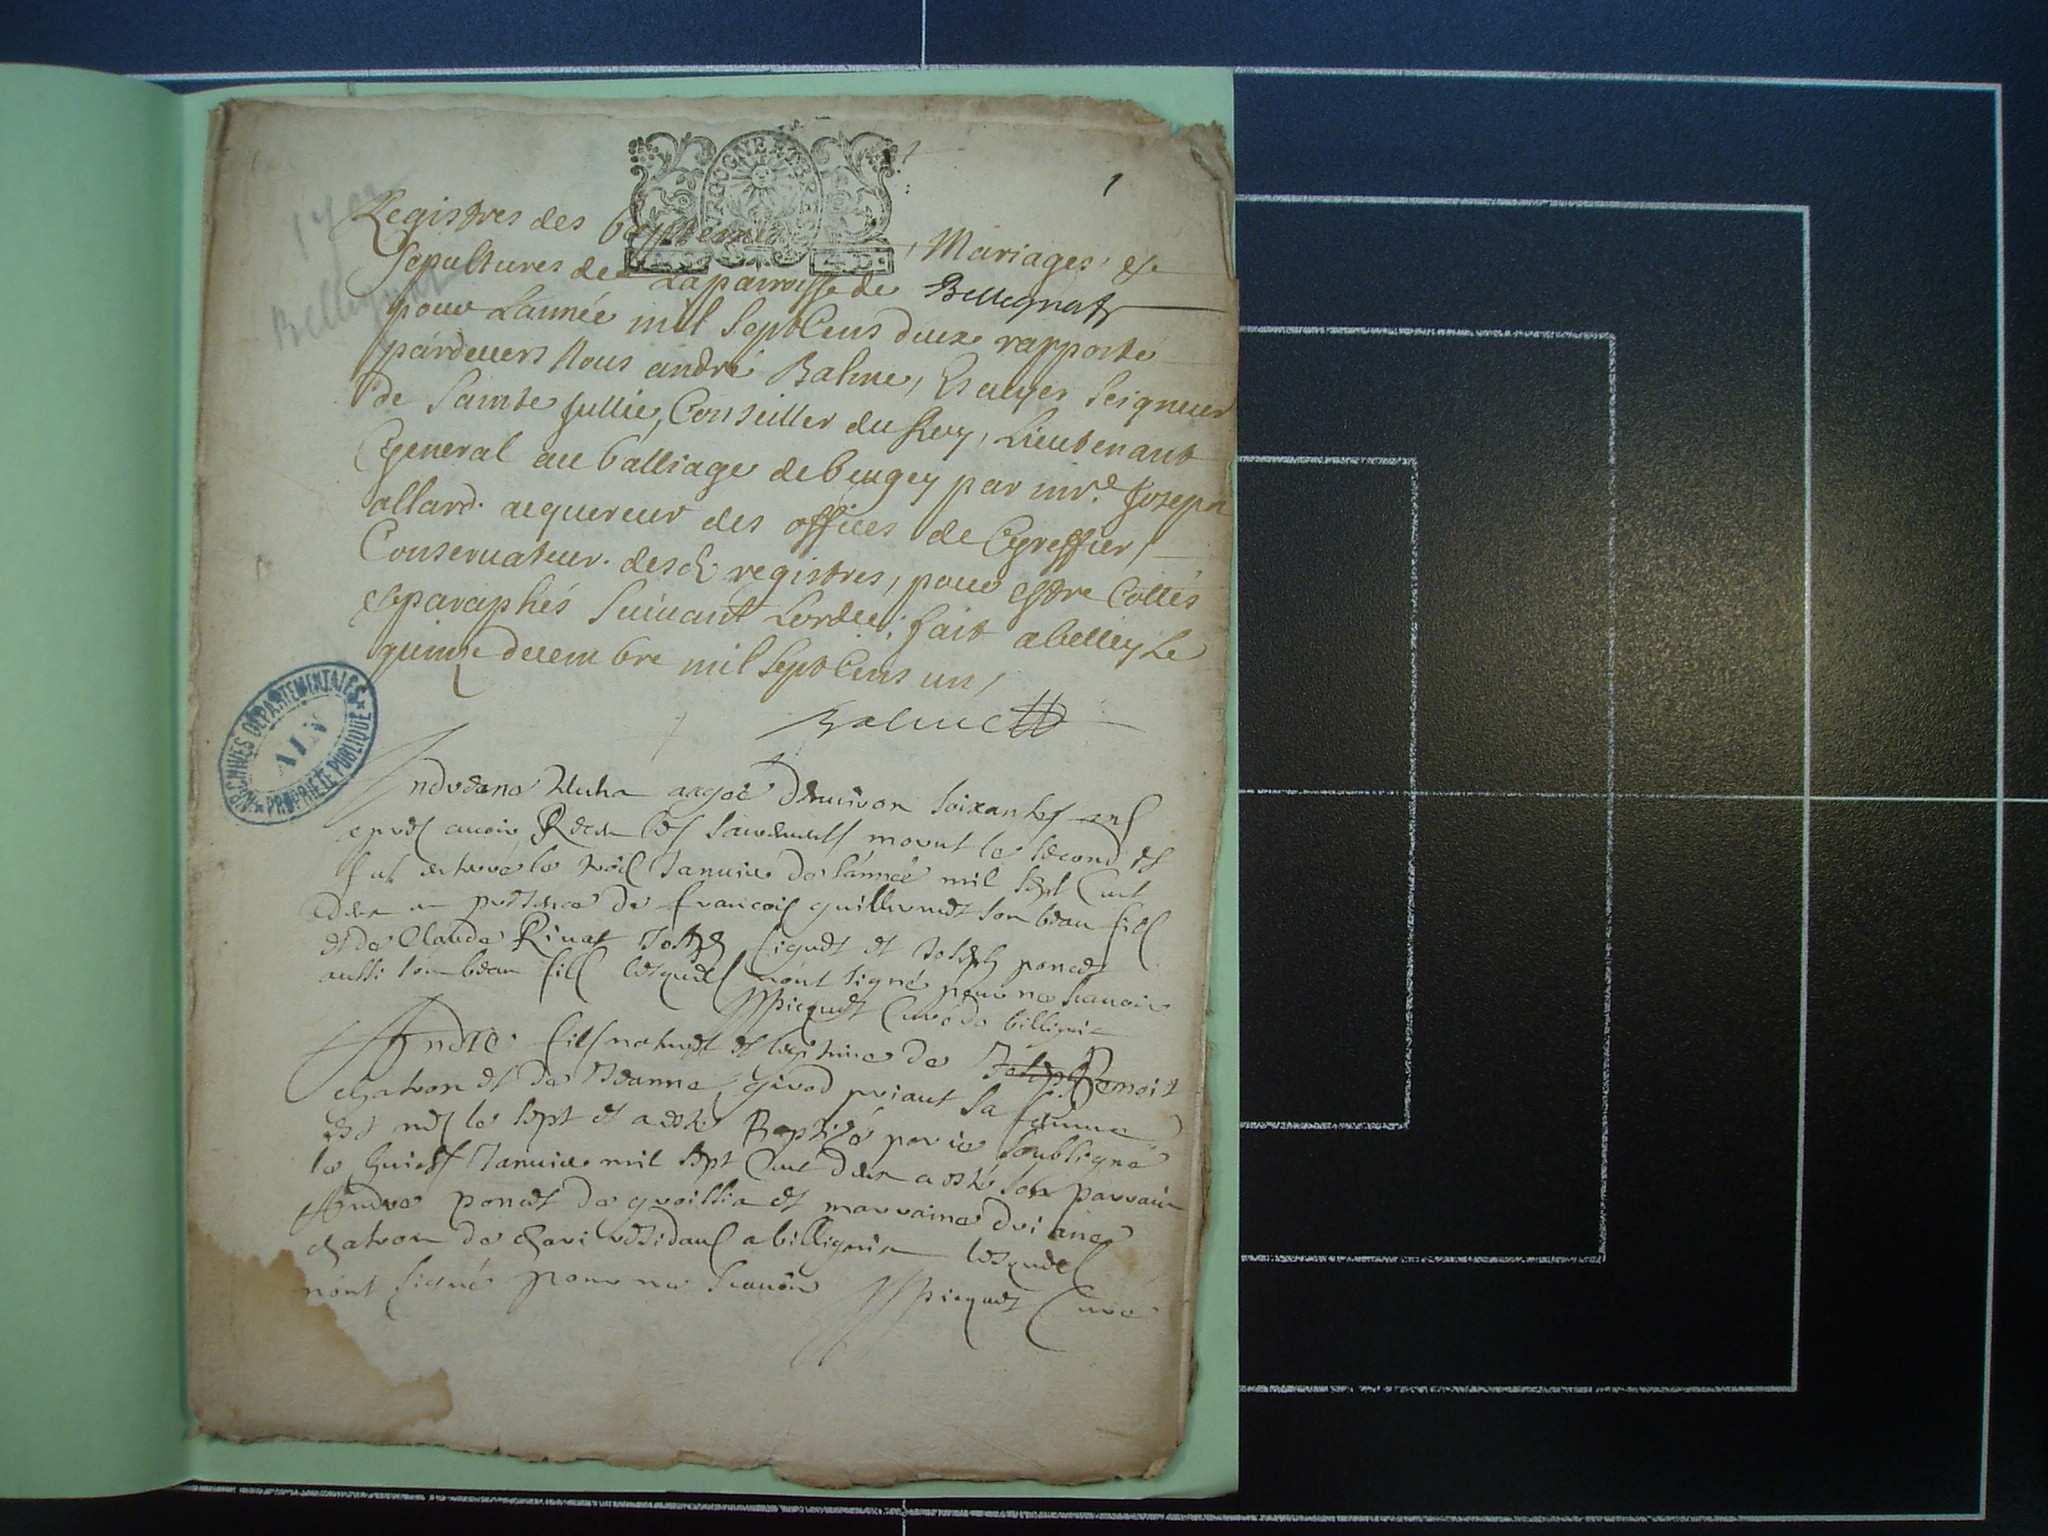 1702
Bellignat
1
BOURGOGNE ET BRESSE
Registres des baptemes, Mariages, et
Sepultures de Laparroisse de Bellegnat
pour L'année mil Sept Cens deux rapporté
pardevers Nous andré Balme, Escuyer Seigneur
de Sainte Jullie, Conseiller du Roy, Lieutenant
General au balliage de beugey par mre. Joseph
allard. acquereur des offices de Greffier,
Conservateur. desd. registres, pour estre Cottés
et paraphés Suivant Lordre; fait a belley Le
quinze decembre mil Sept Cens un,
Balme
ARCHIVES DEPARTEMENTALES
AIN
PROPRIETE PUBLIQUE
aagée denviron soixantes ans
apres avoir Receu les sacrements morut le second et
fut enterré le trois Janvier de l'année mil sept cent
deux en presence de francois guillermet son beau fils
et de Claude Rivat Joseph et Joseph poncet
aussi son beau fils lesquels n'ont signé pour ne scavoir
picquet Curé de billignia
André fils naturel et legitime de Joseph Benoit
chatron et de Jeanne givod priant sa femme
est né le sept et a esté Baptizé par ie soubsigné
le huict Janvier mil sept cent deux a esté son parrain
Andre poncet de groissia et marraine driane
chatron de residans a billignia lesquels
n'ont signé pour ne scavoir picquet Curé